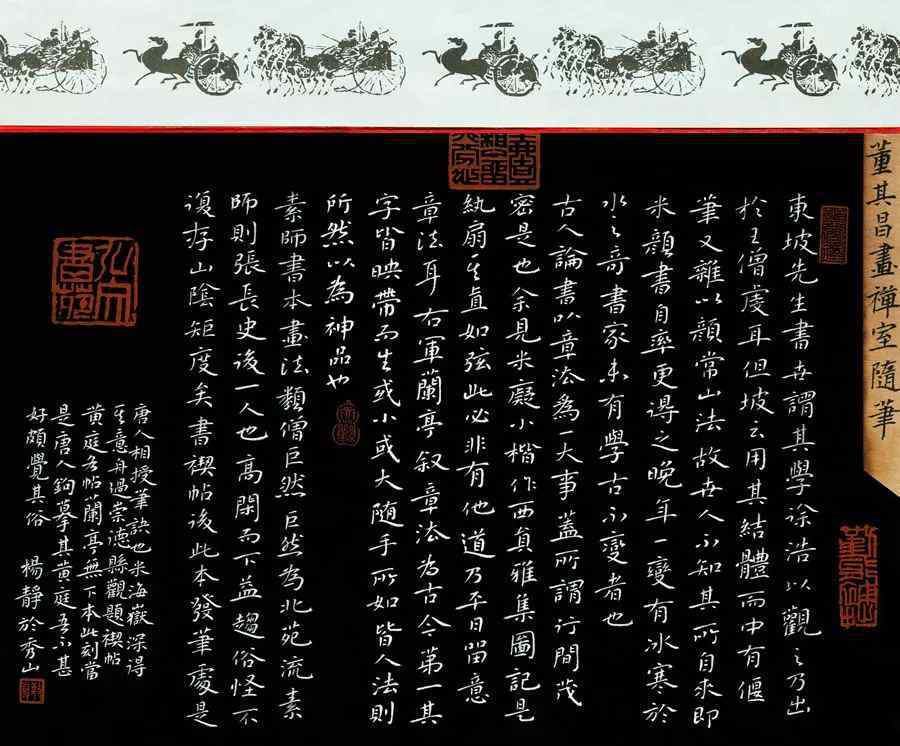 董其昌畫禪室隨筆
東坡先生書世謂其學徐浩以觀之乃出
於王僧虔耳但坡云用其結體而中有偃
筆又雜以顏常山法故世人不知其所自來即
米顏書自率更得之晚年一變有冰寒於
水之奇書家未有學古不變者也
古人論書以章法為一大事蓋所謂行間茂
密是也余見米癡小楷作西園雅集圖記是
紈扇其直如弦此必非有他道乃平日留意
章法耳右軍蘭亭叙章法為古今第一其
字皆映帶而生或小或大隨手所如皆入法則
所然以為神品也
素師書本畫法類僧巨然巨然為北苑流素
師則張長史後一人也高閑而下益趨俗怪不
復存山陰矩度矣書禊帖後此本發筆處是
唐人相授筆訣也米海嶽深得
其意舟過崇德縣觀題禊帖
黃庭名帖蘭亭無下本此刻當
是唐人鉤摹其黃庭吾不甚
好頗覺其俗 楊靜於秀山